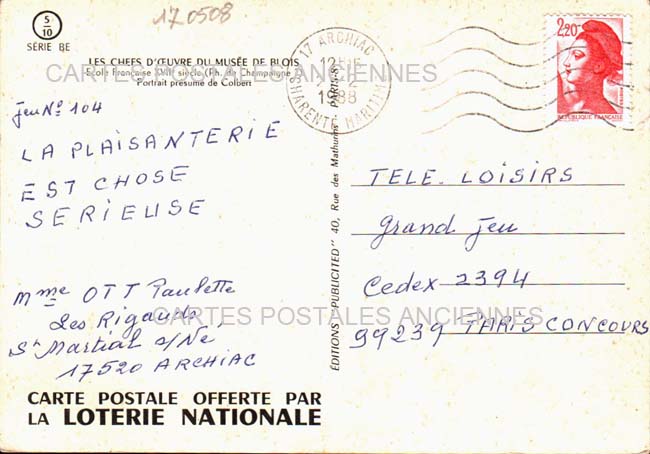 170508
5
10
SÉRIE BE
LES CHEFS D'ŒUVRE DU MUSÉE DE BLOIS
École Française XVIIe siècle (Ph. de Champaigne)
Portrait présumé de Colbert
CARTES POSTALES ANCIENNES
jeu No 104
LA PLAISANTERIE
EST CHOSE
SERIEUSE
Mme OTT Paulette
Les Rigauds
St Martial s/Né
17520 ARCHIAC
CARTE POSTALE OFFERTE PAR
LA LOTERIE NATIONALE
ÉDITIONS "PUBLICITED" 40, Rue des Mathurins PARIS
17 ARCHIAC
1988
CHARENTE MARITIME
2,20
RÉPUBLIQUE FRANÇAISE
TELE. LOISIRS
Grand Jeu
Cedex 2394
99239 PARIS CONCOURS
CARTES POSTALES ANCIENNES